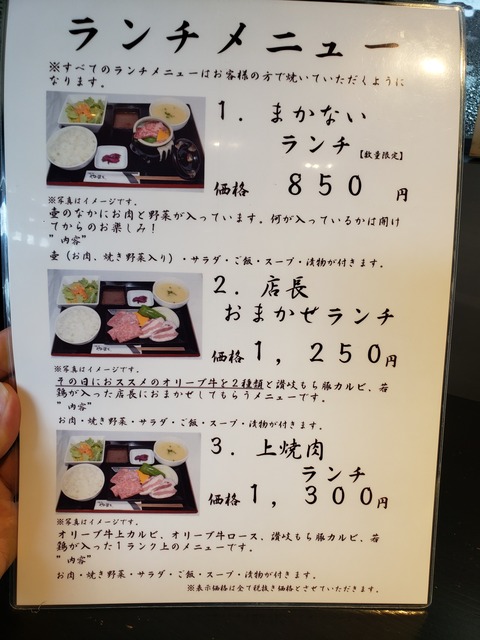 ランチメニュー
※すべてのランチメニューはお客様の方で焼いていただくように
なります。
1. まかない
ランチ【数量限定】
価格 850 円
※写真はイメージです。
壺のなかにお肉と野菜が入っています。何が入っているかは開け
てからのお楽しみ!
"内容"
壺(お肉、焼き野菜入り)・サラダ・ご飯・スープ・漬物が付きます。
2. 店長
おまかぜランチ
価格 1,250円
※写真はイメージです。
その日におススメのオリーブ牛と2種類と讃岐もち豚カルビ、若
鶏が入った店長におまかせしてもらうメニューです。
"内容"
お肉・焼き野菜・サラダ・ご飯・スープ・漬物が付きます。
3. 上焼肉
ランチ
価格 1,300円
※写真はイメージです。
オリーブ牛上カルビ、オリーブ牛ロース、讃岐もち豚カルビ、若
鶏が入った1ランク上のメニューです。
"内容"
お肉・焼き野菜・サラダ・ご飯・スープ・漬物が付きます。
※表示価格は全て税抜き価格とさせていただきます。